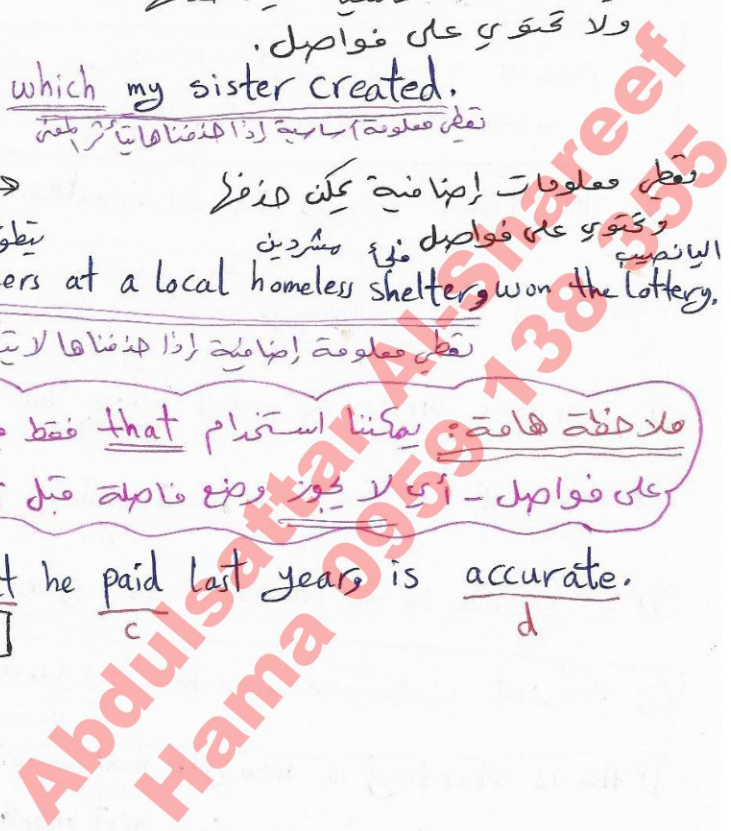 ولا تحتوي على فواصل.
which my sister created.
تعطي معلومة أساسية إذا حذفناها يتأثر المعنى
تعطي معلومات إضافية يمكن حذفها
وتحتوي على فواصل
اليانصيب ملجأ مشردين
ers at a local homeless shelter, won the lottery.
تعطي معلومة إضافية إذا حذفناها لا
ملاحظة هامة: يمكننا استخدام that فقط
على فواصل - أي لا يجوز وضع فاصلة قبل
he paid last year, is accurate.
c d
Abdulsattar Al-Shareef
Hama 0959 138 355